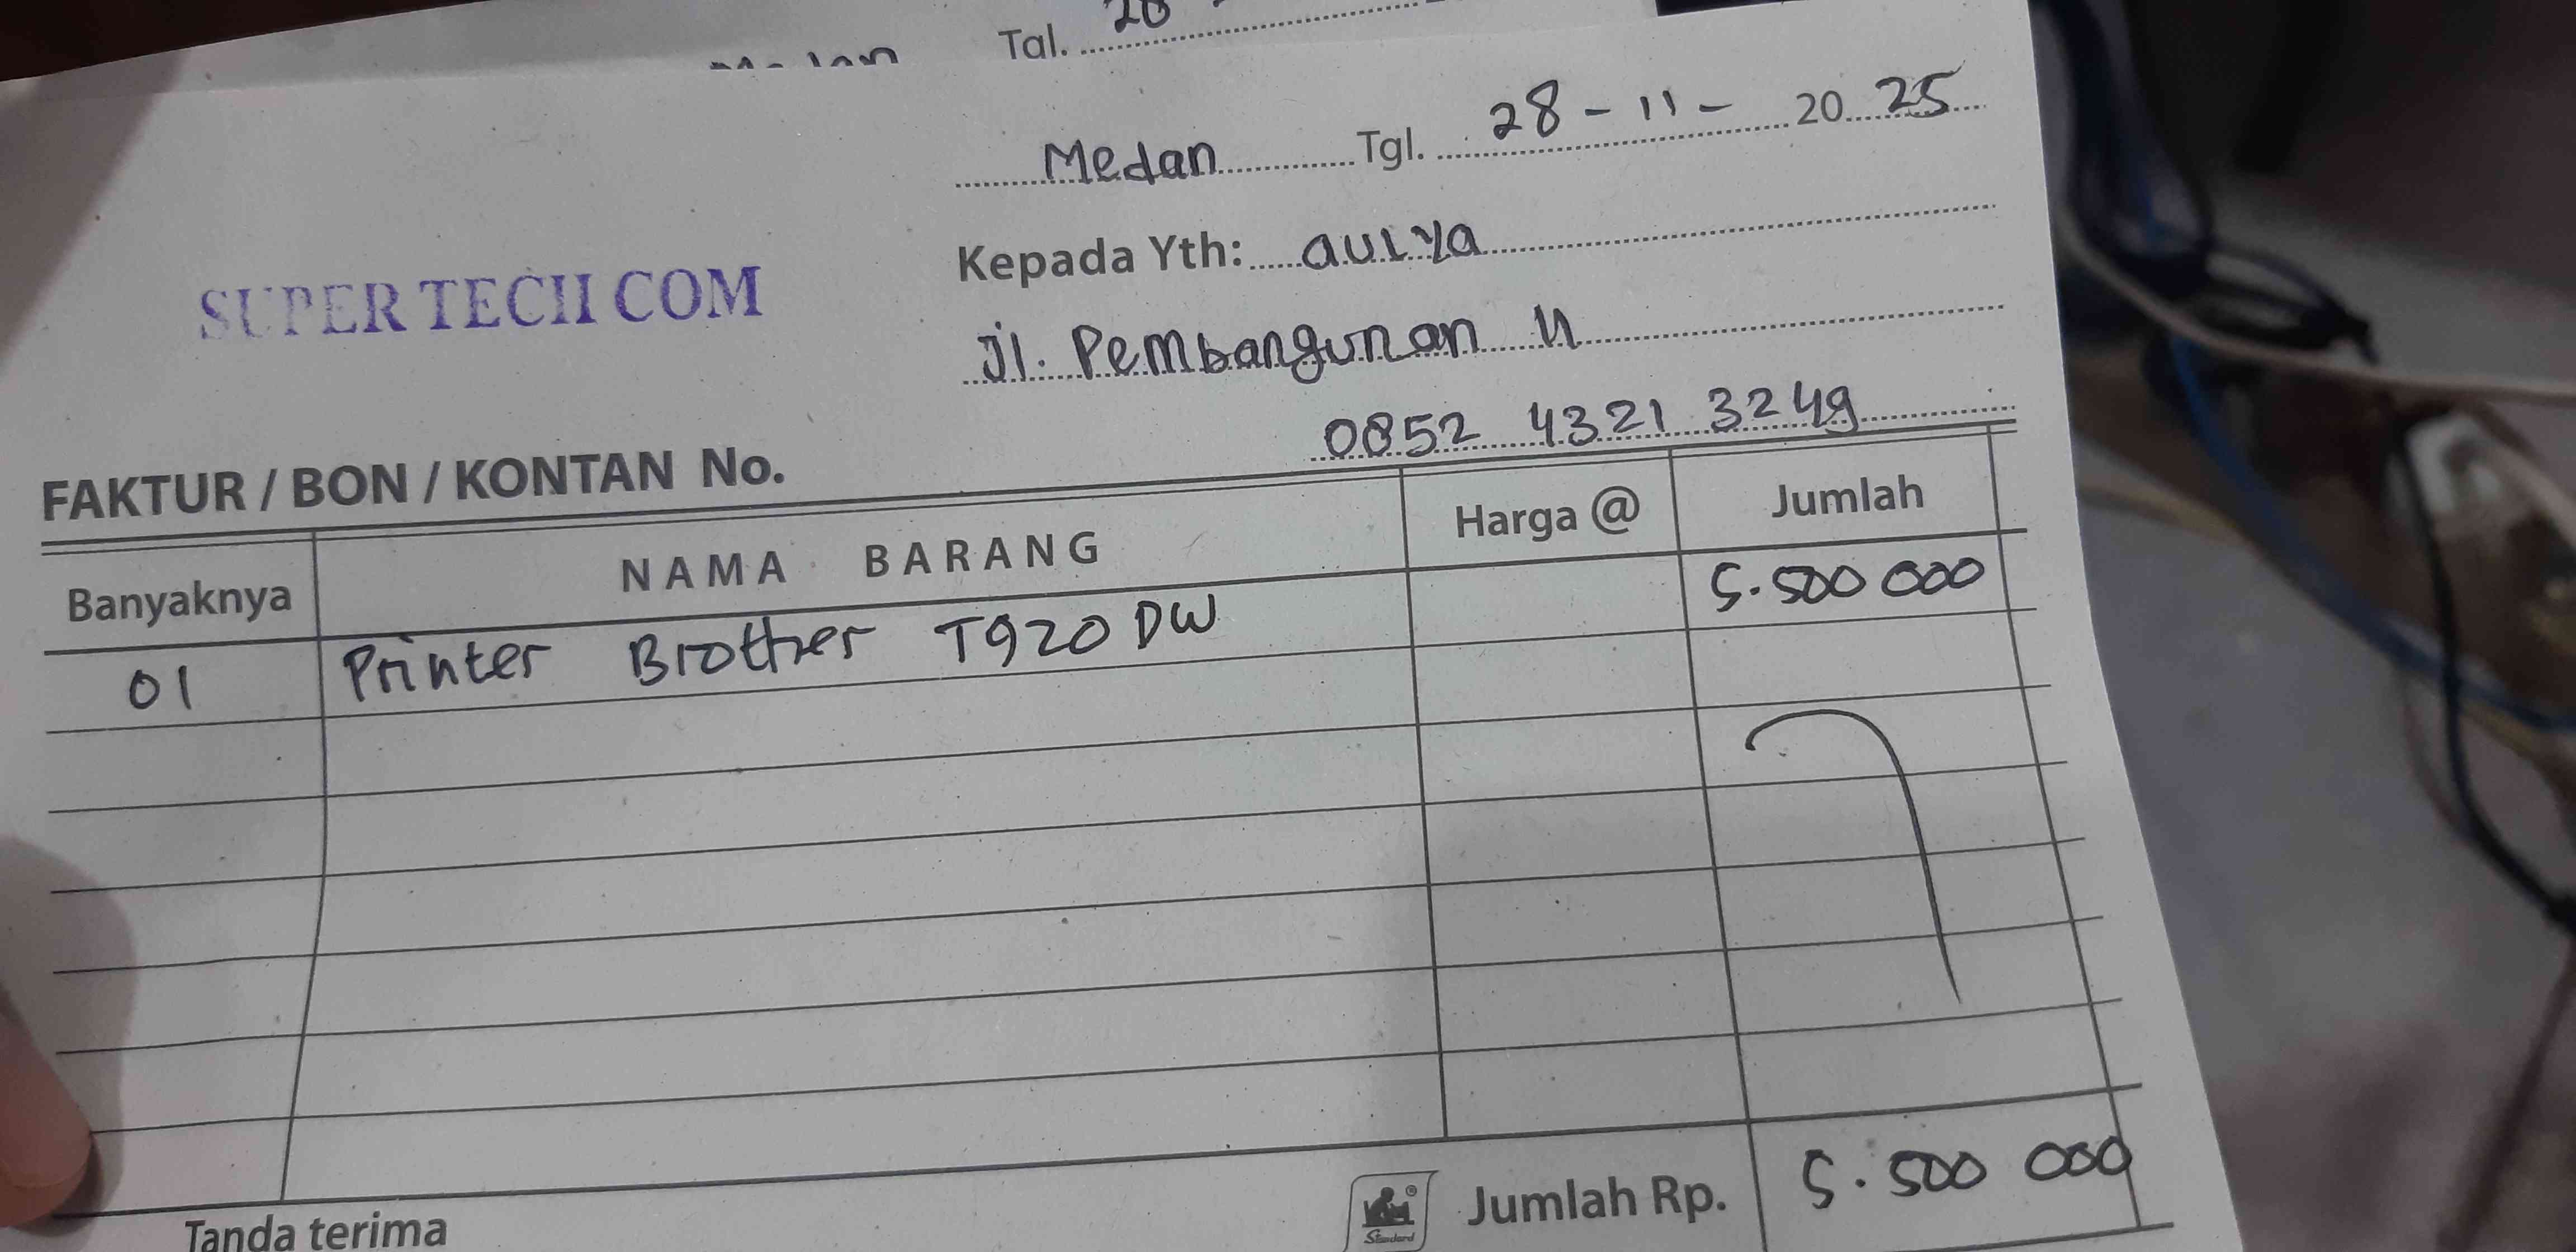 Tgl. 28
Medan Tgl. 28 - 11 - 20 25
Kepada Yth: aulya
SUPER TECH COM
Jl. Pembangunan
0852 4321 3249
FAKTUR / BON / KONTAN No.
Banyaknya NAMA BARANG Harga @ Jumlah
01 Printer Brother T920 DW 5.500 000
Jumlah Rp. 5.500 000
Standard
Tanda terima